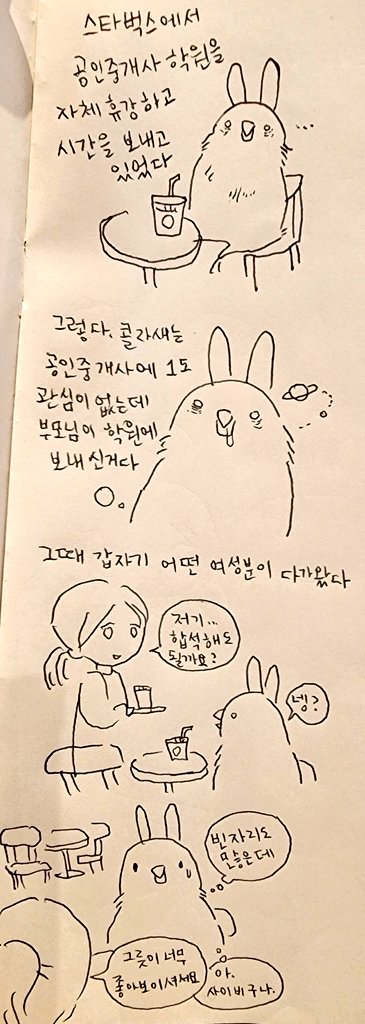 스타벅스에서
공인중개사 학원을
자체 휴강하고
시간을 보내고
있었다
...
그렇다. 콜라새는
공인중개사에 1도
관심이 없는데
부모님이 학원에
보내신거다
그때 갑자기 어떤 여성분이 다가왔다
저기...
합석해도
될까요?
넹?
빈자리도
많은데
그릇이 너무
좋아보이셔서요
아.
사이비구나.